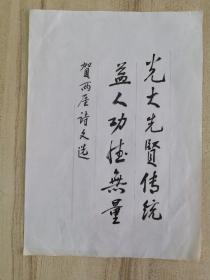 光大先賢传统
益人功德無量
賀兩屋詩文选